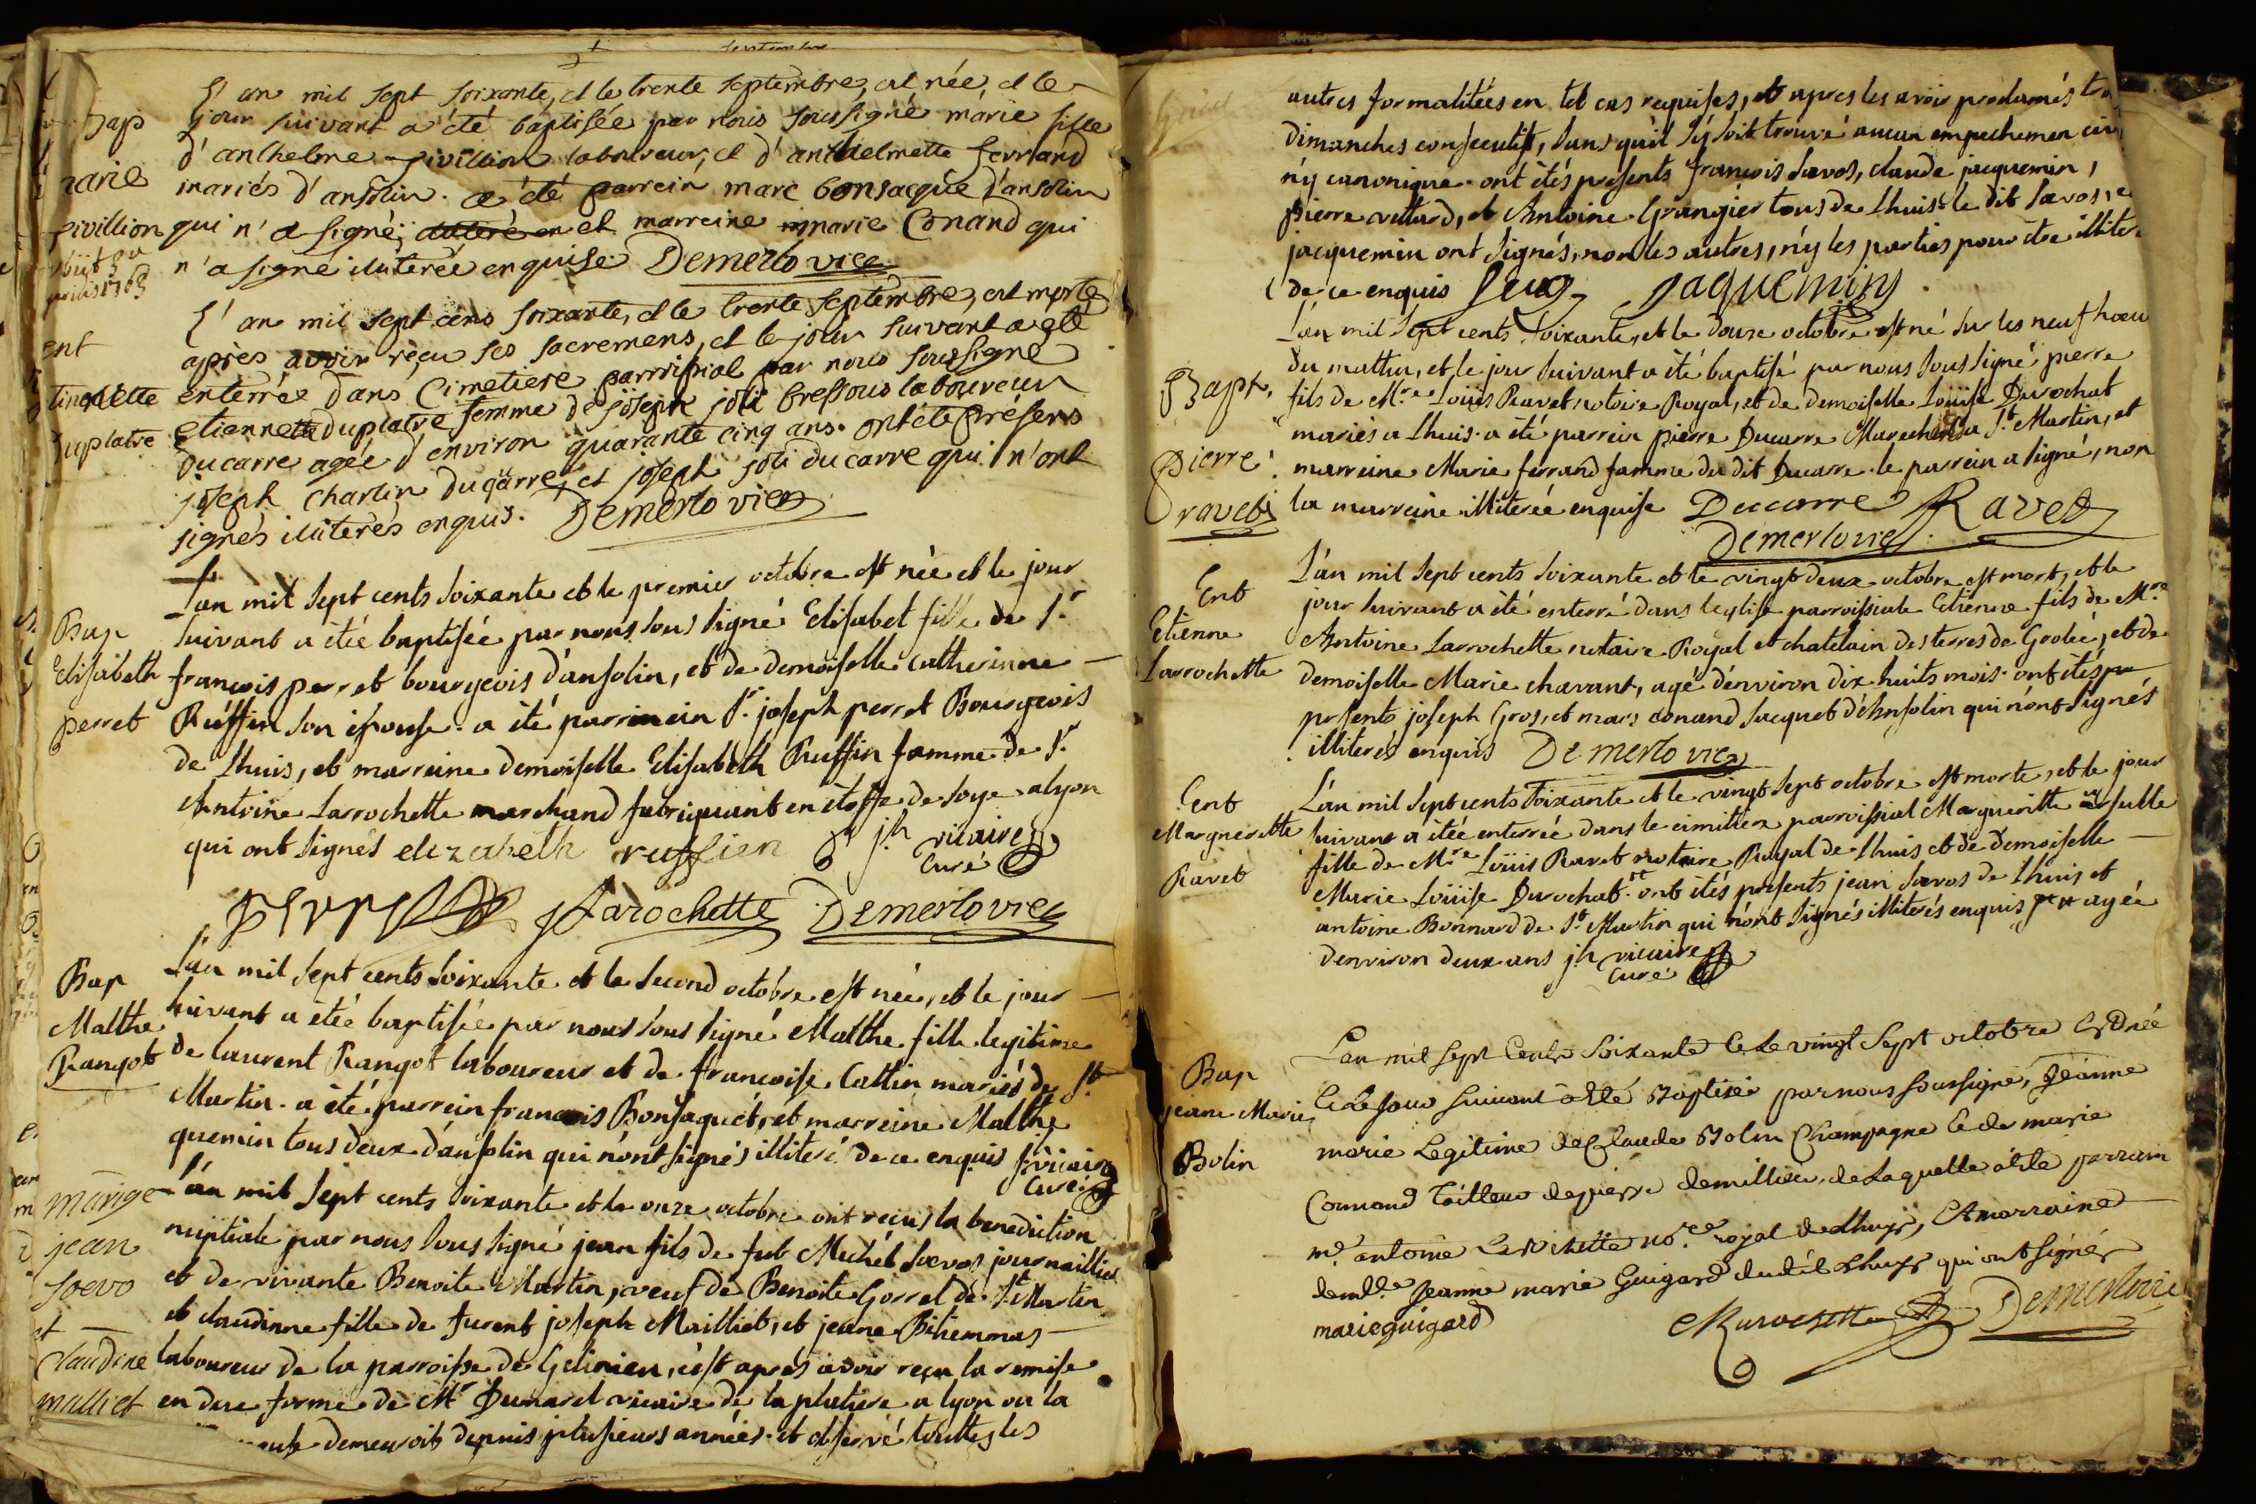 septembre
Bap
marie
pivillion
L'an mil sept soixante, et le trente septembre, est née, et le
jour suivant a été baptisée par nous soussigné marie fille
d'anthelme pivillion laboureur, et d'anthelmette ferrand
mariés d'ansolin. a été parrein marc bonsacque d'ansolin
qui n'a signé, et marreine marie Conand qui
n'a signé iliterée enquise. Demerlo vice
ent
tiennette
duplatre
L'an mil sept cens soixante, et le trente septembre, est morte
après avoir reçu ses sacremens, et le jour suivant a été
enterrée dans Cimetiere parroissial par nous soussigné
etiennette duplatre femme de joseph joli bressous laboureur
ducarre agée d'environ quarante cinq ans. ont été présens
joseph charlin ducarre, et joseph joli ducarre qui n'ont
signés iliterés enquis. Demerlo vice
Bap
Elisabeth
perret
L'an mil sept cents soixante et le premier octobre est née et le jour
suivant a étée baptisée par nous sous signé Elisabet fille de Sr.
françois perret bourgeois d'ansolin, et de demoiselle catherinne
Ruffin son épouse. a été parrein Sr. joseph perret Bourgeois
de Lhuis, et marreine demoiselle Elisabeth Ruffin famme de Sr.
Antoine Larrochette marchand fabriquant en étoffe de soye a lyon
qui ont signés elizabeth ruffien jh vicaire
Curé
perret JLarochette Demerlo vice
Bap
Malthe
Rangot
L'an mil sept cents soixante et le second octobre est née, et le jour
suivant a étée baptisée par nous sous signé Malthe fille legitime
de laurent Rangot laboureur et de francoise Cattin mariés de St.
Martin. a été parrein francois Bonsaquet, et marreine Malthe
quemin tous deux d'ansolin qui n'ont signés illiteré de ce enquis jh vicaire
Curé
marige
jean
soevo
et
Claudine
malliet
L'an mil sept cents soixante et le onze octobre ont reçus la benediction
nuptiale par nous sous signé jean fils de fut Michel soevos journaillier
et de vivante Benoite Martin, veuf de Benoite Gorrel de St. Martin
et claudinne fille de furent joseph Mailliet, et jeane Bihemmas
laboureur de la parroisse de Gelinieu, c'est après avoir reçu la remise
en due forme de Mr Dunarel vicaire de la platiere a lyon ou la
demeuroit depuis plusieurs années. et observé touttes les
autres formalitées en tel cas requises, et apres les avoir proclamés
dimanches consecutifs, sans qu'il s'y soit trouvé aucun empechemen
n'y canonique. ont étés presents françois soevos, claude jacquemin,
pierre vettard, et Antoine Grangier tous de Lhuis. le dit soevos,
jacquemin ont signés, non les autres, n'y les parties pour etre
de ce enquis jaquemin
Bapt.
Pierre
ravet
L'an mil sept cents soixante, et le douze octobre est né sur les neuf
du mattin, et le jour suivant a été baptisé par nous sous signé pierre
fils de Mre Loüis Ravet notaire Royal, et de demoiselle Loüise Durochat
mariés a Lhuis. a été parrein pierre Ducarre a St. Martin, et
marreine Marie ferrand famme du dit Ducarre. le parrein a signé, non
la marreine illiterée enquise Ducarre Ravet
Demerlo vice
Ent
Etienne
Larrochette
L'an mil sept cents soixante et le vingt deux octobre est mort, et le
jour suivant a été enterré dans leglise parroissiale Etienne fils de Mre
Antoine Larrochette notaire Royal et chatelain des terres de Groleé, et de
demoiselle Marie chavant, agé d'environ dix huits mois. ont étés
presents joseph Gros, et marc conand sacquet d'Ansolin qui n'ont signés
illiterés enquis Demerlo vice
Ent
Marguerette
Ravet
L'an mil sept cents soixante et le vingt sept octobre est morte, et le jour
suivant a étée enterrée dans le cimitiere parroissial Margueritte ursulle
fille de Mre Loüis Ravet notaire Royal de Lhuis et de demoiselle
Marie Loüise Durochat. ont étés presents jean soevos de Lhuis et
antoine Bonnard de St. Martin qui n'ont signés illiterés enquis agée
denviron deux ans jh vicaire
Curé
Bap
jeane Marie
Bolin
L'an mil sept Cents soixante et le vingt sept octobre Est née
Et le jour suivant a été Baptisée par nous soussigné, jeanne
marie Legitime de Claude Bolin Champagne et de marie
Connand Tailleur de pierre de millieu, de Laquelle a été parrain
me. antoine Larochette nore royal de Lhuys, Et marraine
demlle jeanne marie Guigard dudit Lhuys qui ont signés
marie guigard Larochette Demerlo vice